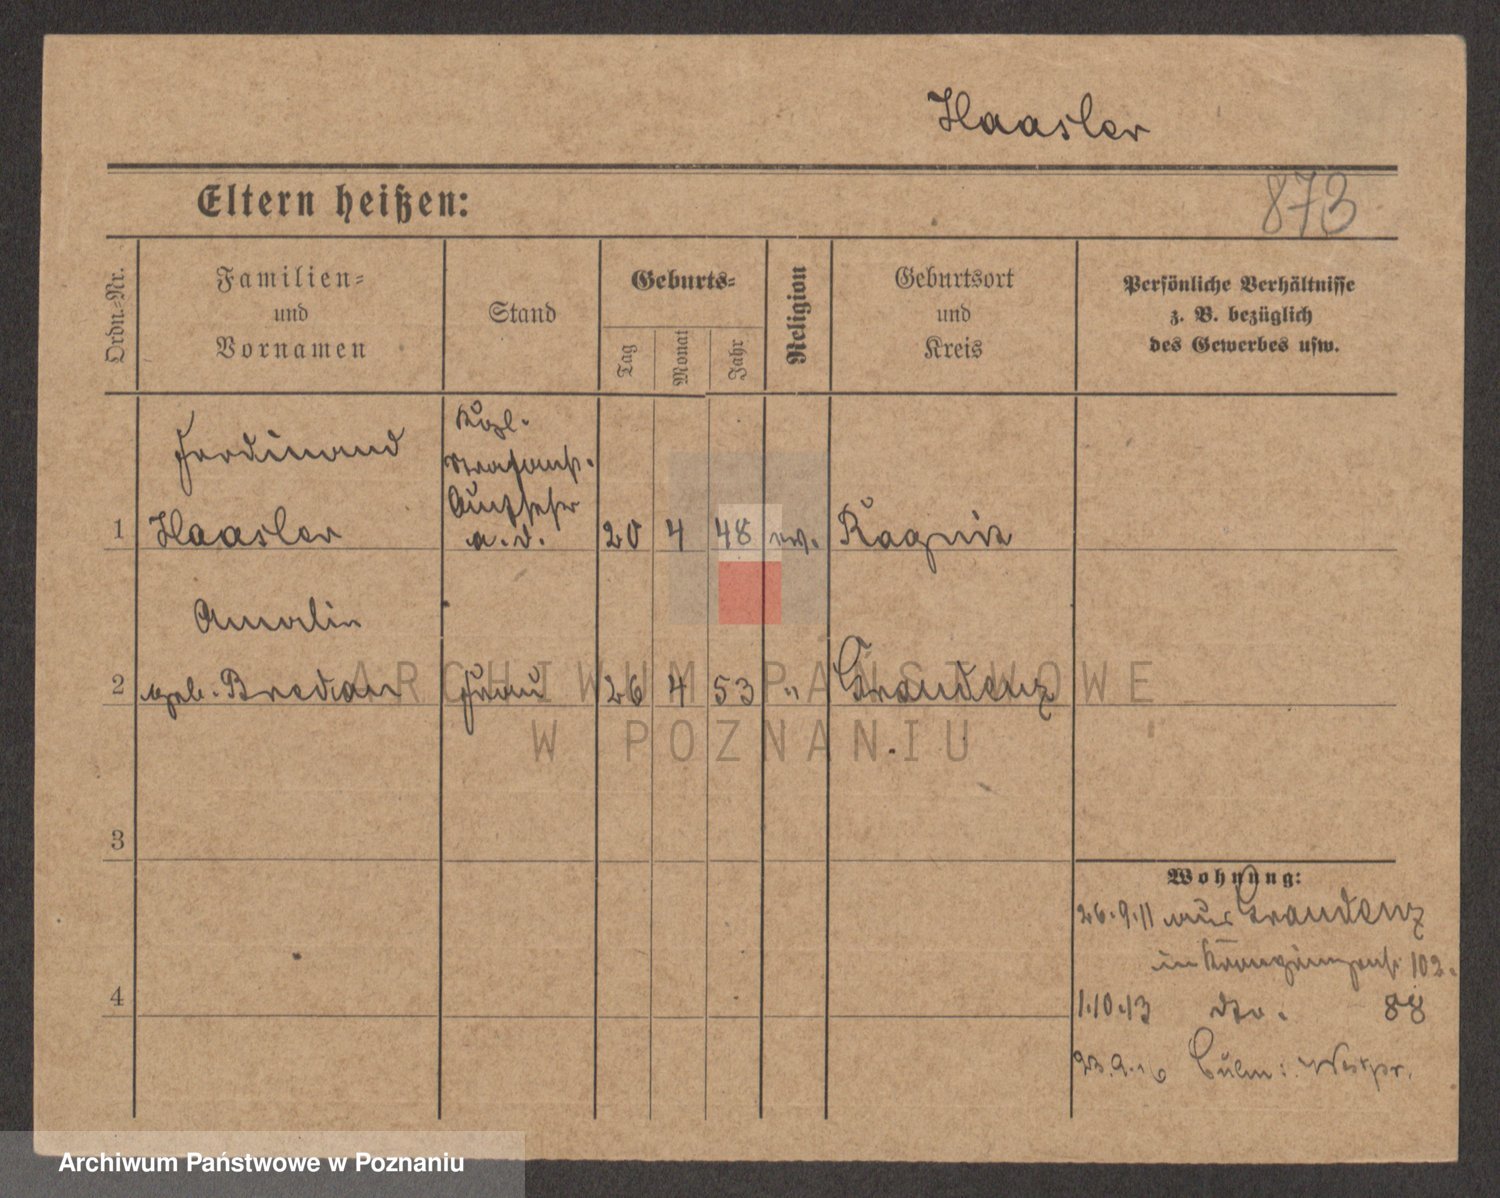 Haasler
Eltern heißen:
873
Ordn.-Nr.
Familien-
und
Vornamen
Stand
Geburts-
Tag
Monat
Jahr
Religion
Geburtsort
und
Kreis
Persönliche Verhältnisse
z. B. bezüglich
des Gewerbes usw.
Ferdinand
Kgl.
Strafanst.
Aufseher
1 Haasler a. D. 20 4 48 ev. Ragnit
Amalie
2 geb. Bredau Frau 26 4 53 " Graudenz
3
Wohnung:
26.9.11 aus Graudenz
in 102.
4
1.10.13 dto. 88
23.9.16 Culm: Westpr.
ARCHIWUM PAŃSTWOWE
W POZNANIU
Archiwum Państwowe w Poznaniu